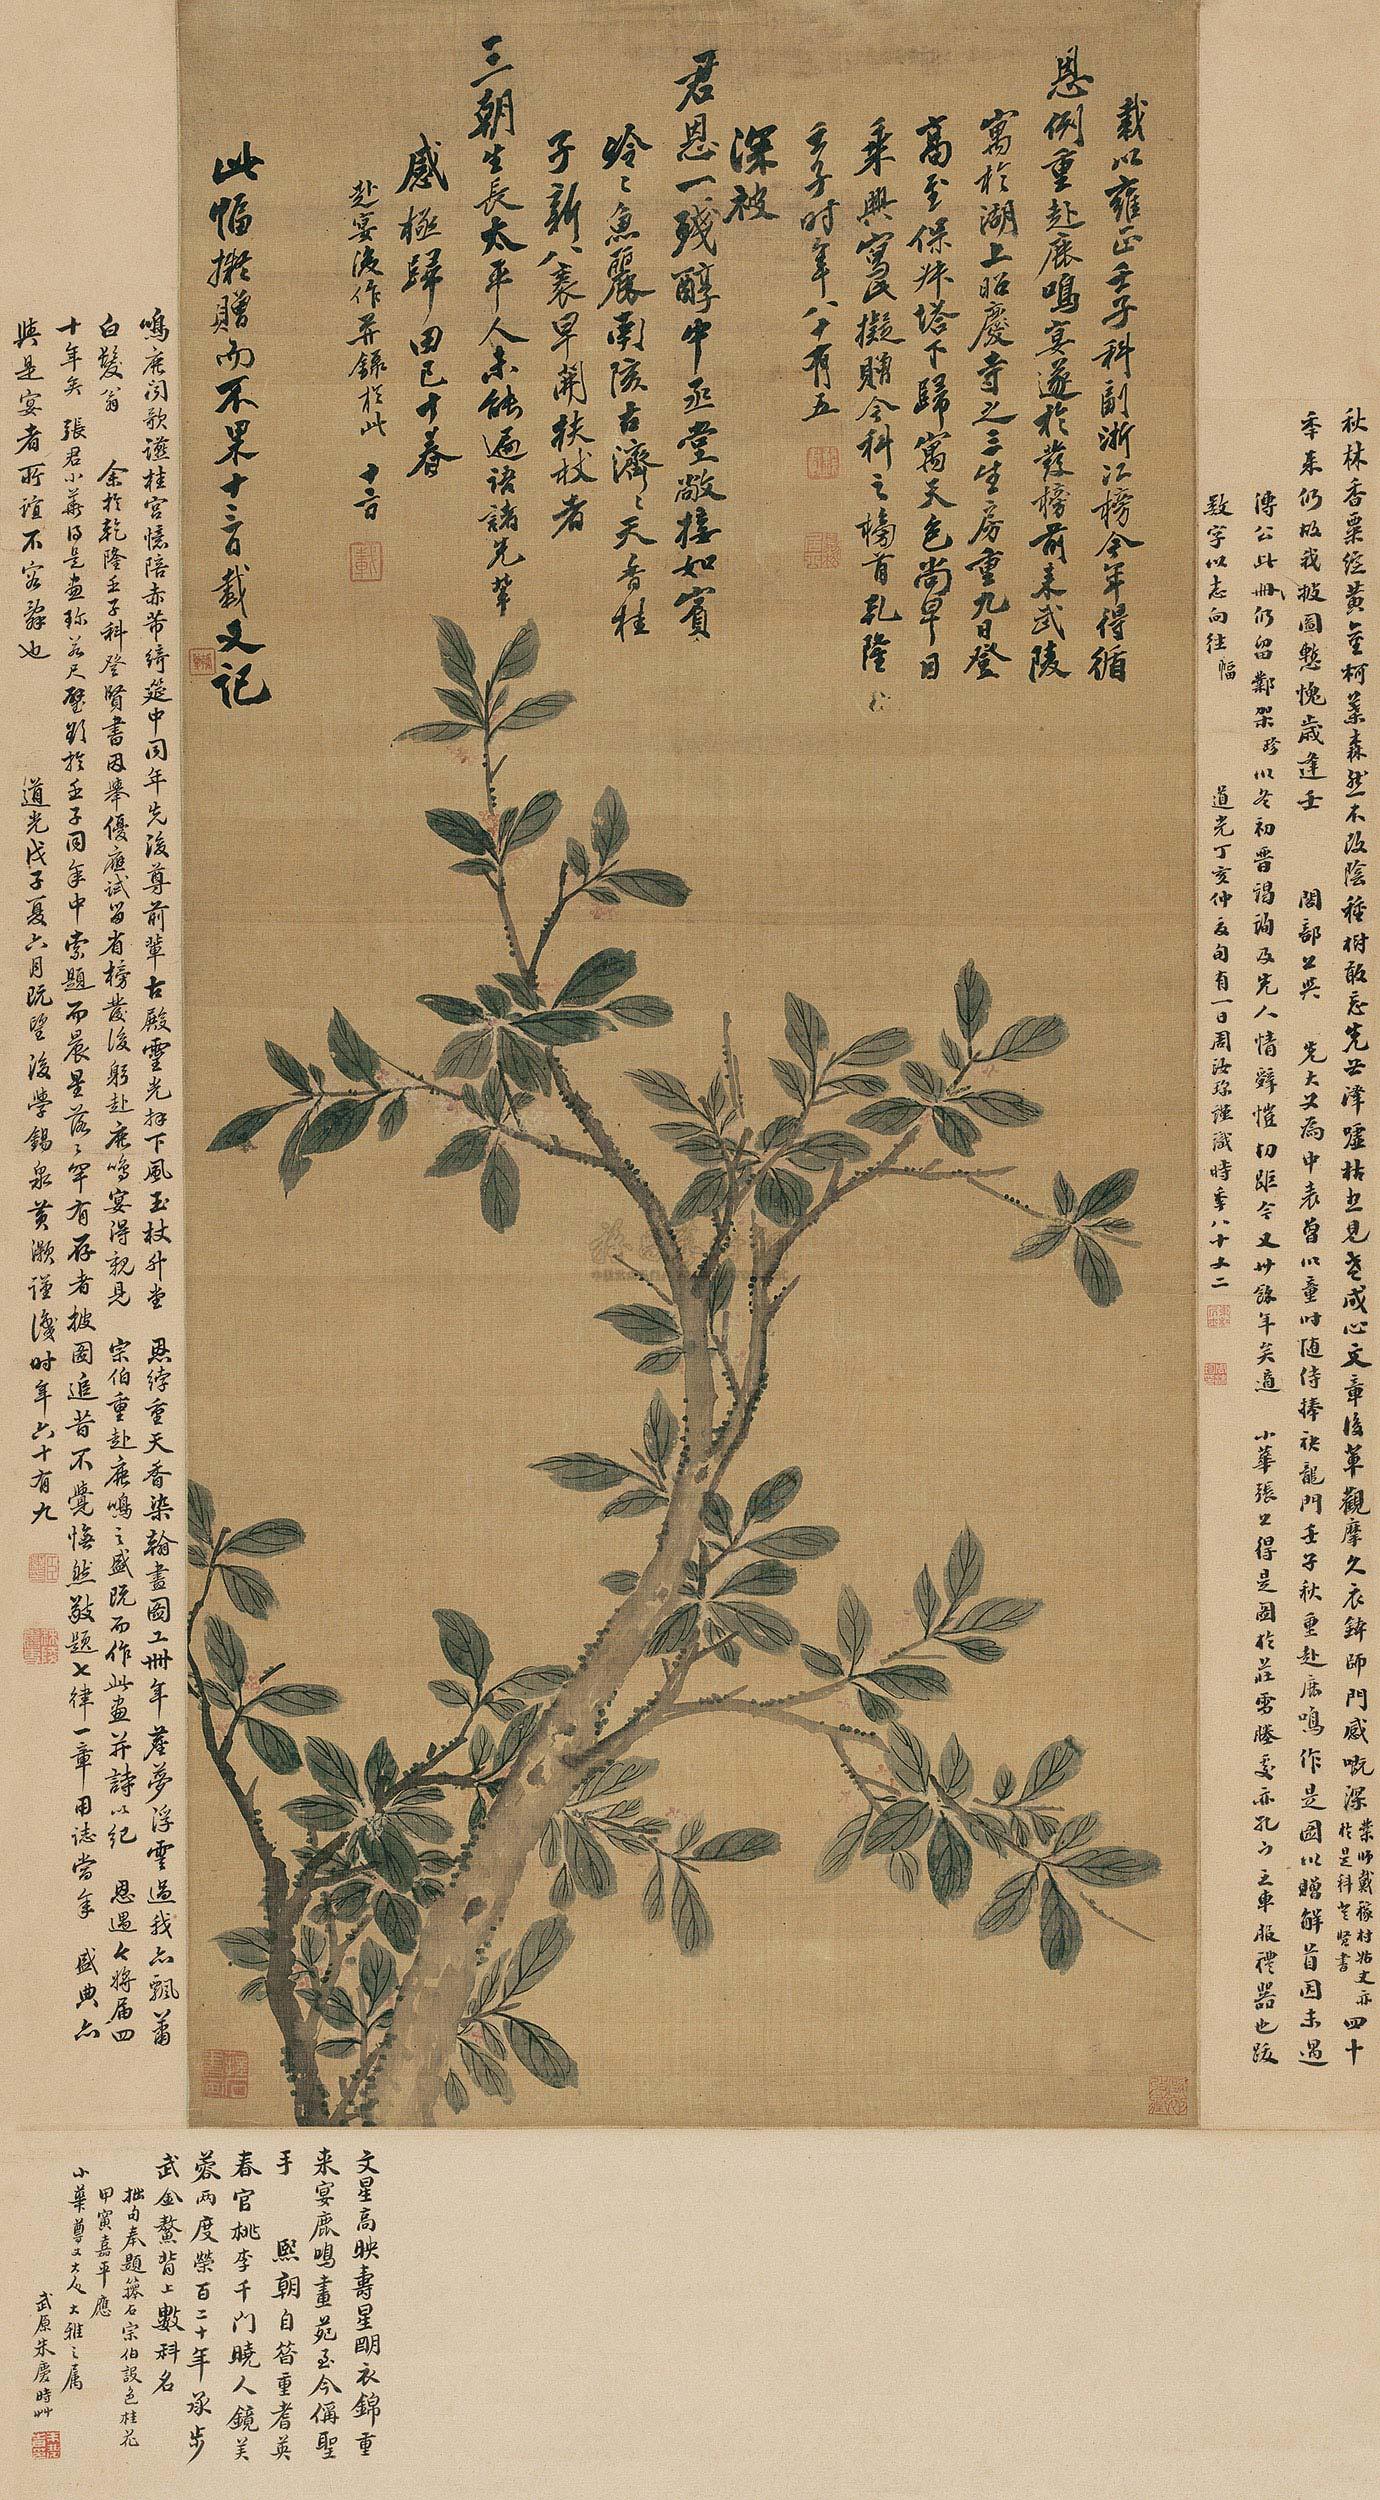 載以雍正壬子科副浙江榜今年得循
恩例重赴鹿鳴宴遂於發榜前來武陵
寓於湖上昭慶寺之三生房重九日登
高至保叔塔下歸寓天色尚早日
乘興寫此擬贈今科之榜首乾隆
壬子时年八十有五
深被
君恩一殘醇中丞堂敞接如賓
岭〻魚麗南陔古濟〻天香桂
子新八袠早開扶杖者
三朝生長太平人未能遍語諸先輩
感極歸田已十春
赴宴後作并錄於此 十六日
此幅擬贈而不果十二日載又記
秋林香粟綻黃金柯葉森然不改陰種樹敢忘先世澤噓枯想見老成心文章後輩觀摩久衣鉢師門感嘅深
業師戴穟村姑丈亦
於是科登賢書
四十
年来仍故我披圖慙愧歲逢壬 閣部公與 先大父為中表曾以童时随侍捧袂龍門壬子秋重赴鹿鳴作是圖以贈解首因未遇
傳公此冊仍留鄴架 珍以冬初晋謁詢及先人情辭愷切距今又卅餘年矣適 小華張公得是圖於莊雩塍處亦孔門之車服禮器也跋
数字以志向往 幅 道光丁亥仲夏旬有一日周汝珍謹識時年八十又二
鳴鹿闻歌讌桂宮憶陪赤芾绮筵中同年先後尊前輩古殿靈光拜下風玉杖升堂 恩綍重天香染翰畫圖工卅年塵夢浮雲過我亦飄蕭
白髮翁 余於乾隆壬子科登賢書因舉優應試留省榜發後躬赴鹿鳴宴得親見 宗伯重赴鹿鳴之盛既而作此畫并詩以纪 恩遇今將届四
十年矣 張君小華得是画珍若尺璧欲於壬子同年中索題而晨星落〻罕有存者披图追昔不覺憮然敬题七律一章用誌當年 盛典亦
與是宴者所誼不容辭也 道光戊子夏六月既望後學錫泉黄灝謹識时年六十有九
文星高映壽星明衣錦重
来宴鹿鳴畫苑至今偁聖
手 熙朝自昝重耆英
春官桃李千门曉人鏡芙
蓉两度榮百二十年承步
武金鰲背上數科名
拙句奉題籜石宗伯設色桂花
甲寅嘉平應
小華尊丈大人大雅之属
武原朱慶時艸